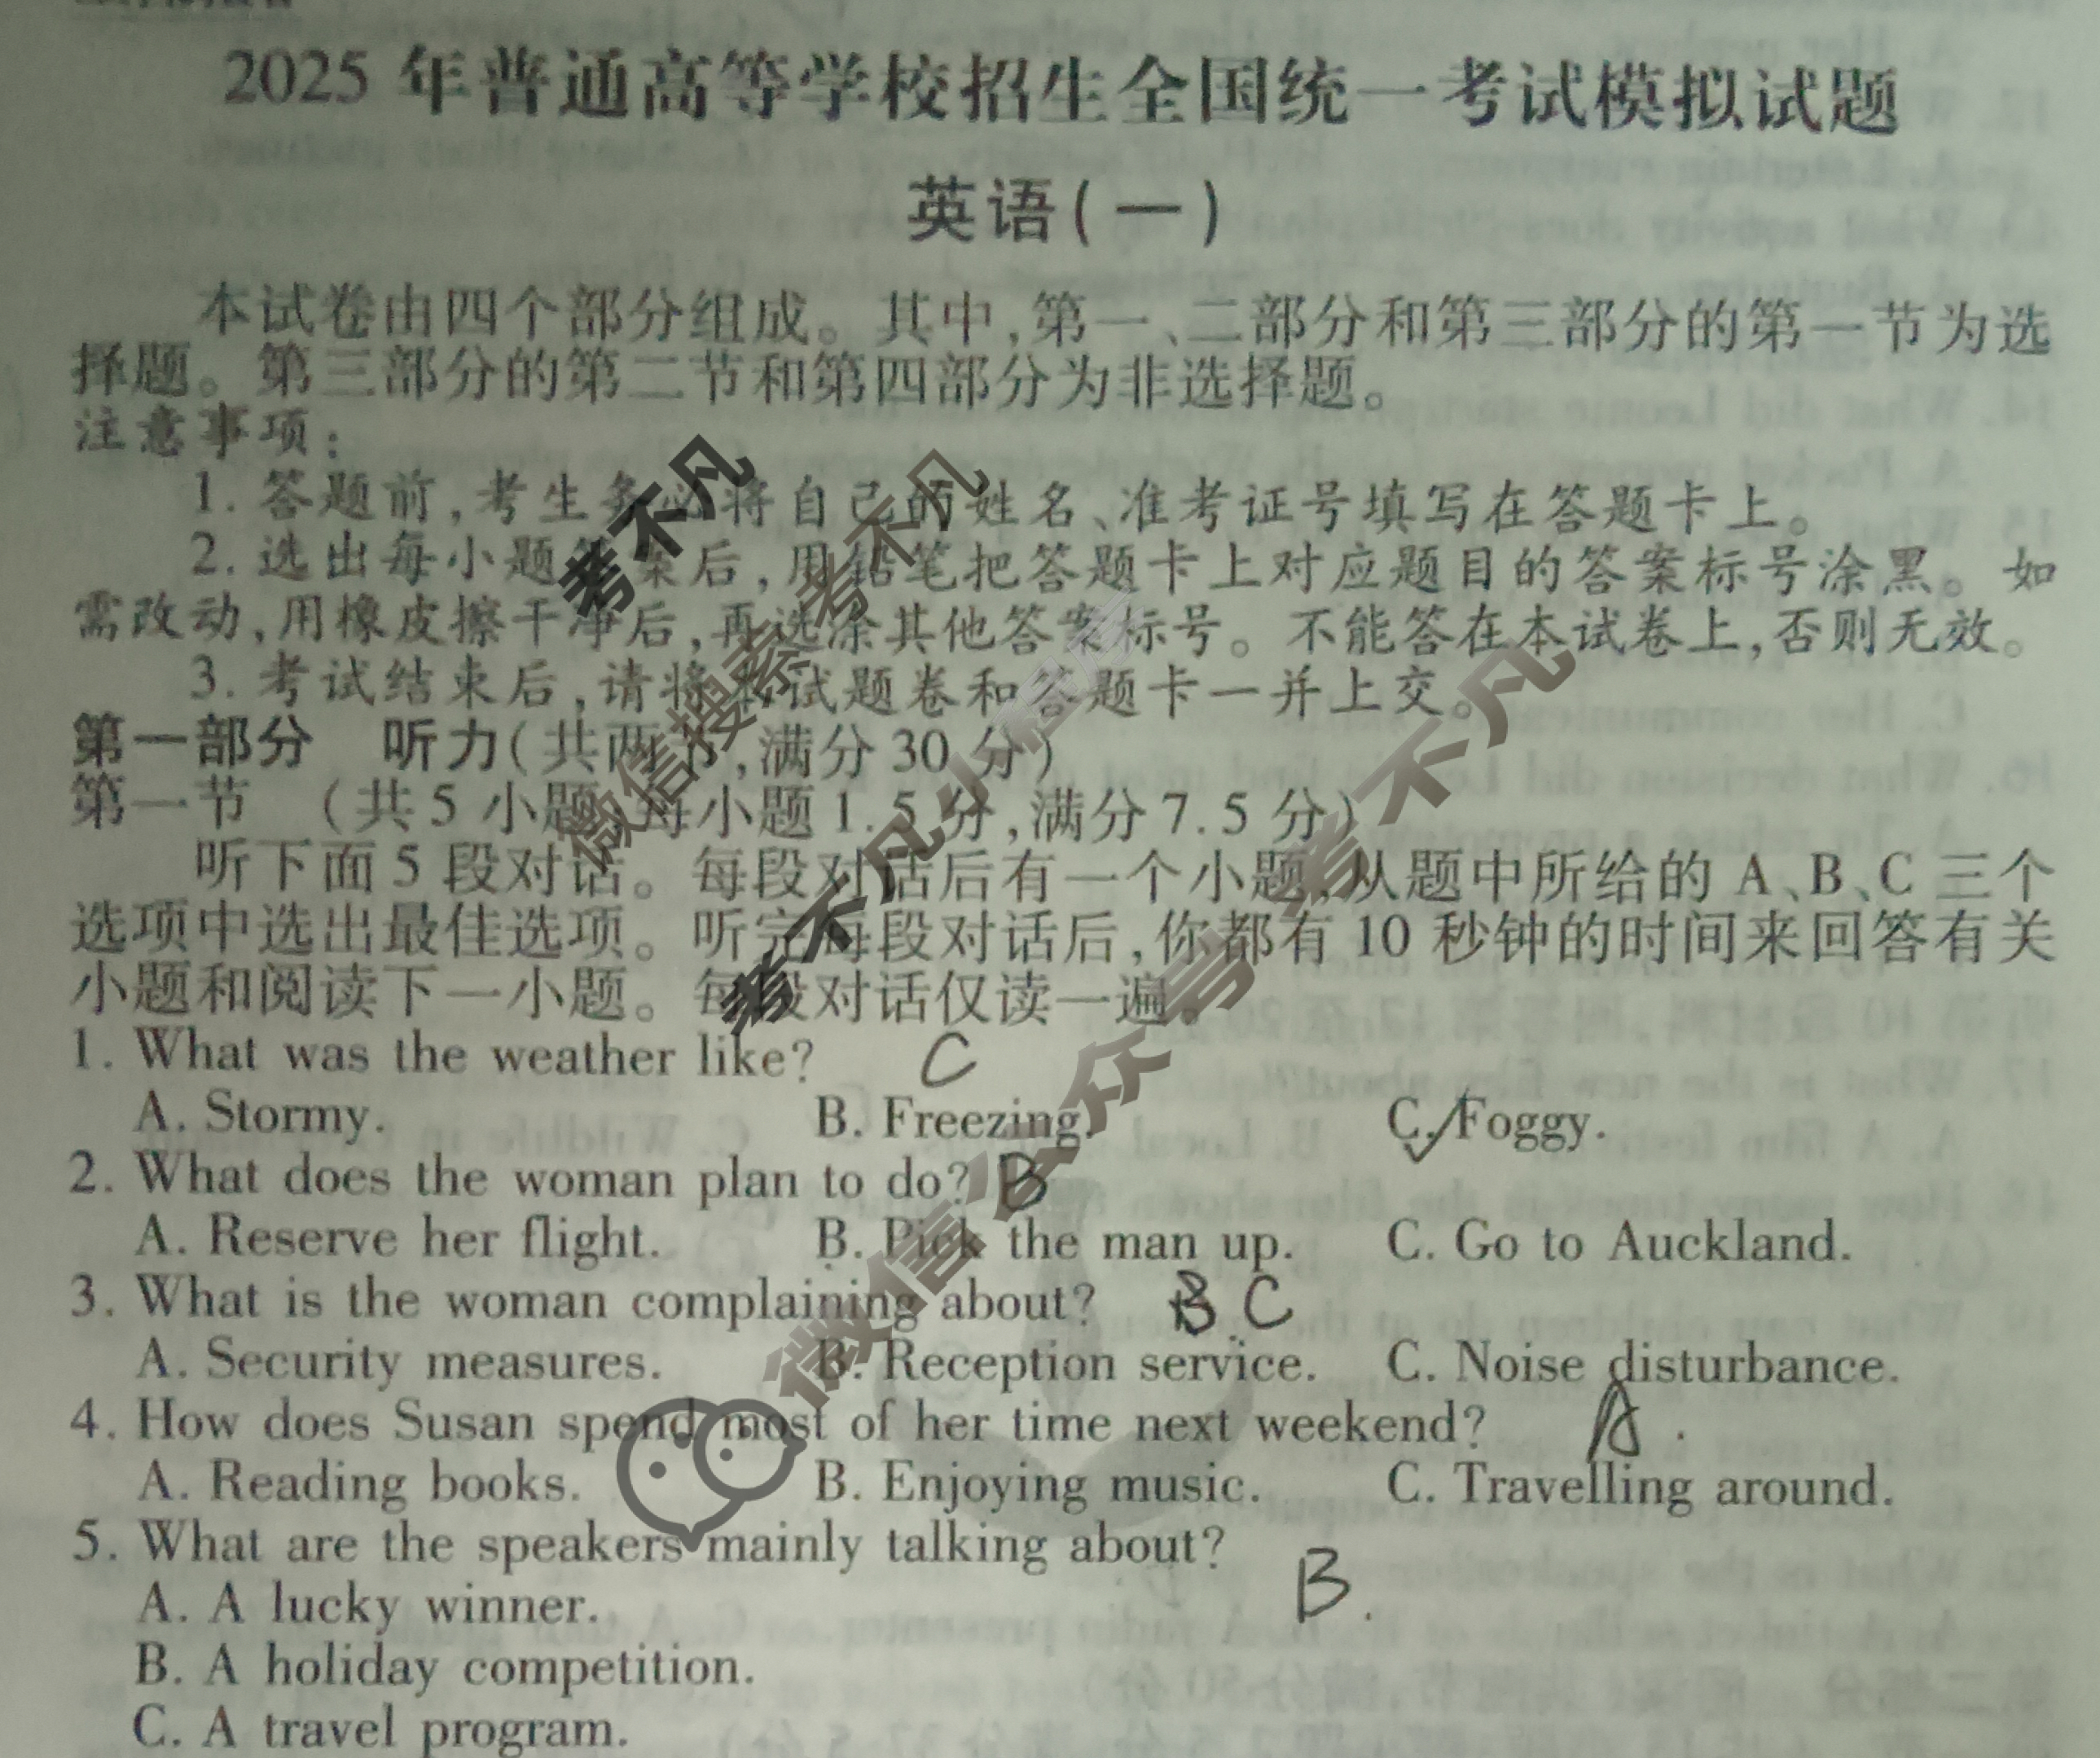 2025 年普通高等学校招生全国统一考试模拟试题
英语(一)
本试卷由四个部分组成。其中,第一、二部分和第三部分的第一节为选
择题。第三部分的第二节和第四部分为非选择题。
注意事项:
1. 答题前,考生务必将自己的姓名、准考证号填写在答题卡上。
2. 选出每小题答案后,用铅笔把答题卡上对应题目的答案标号涂黑。如
需改动,用橡皮擦干净后,再选涂其他答案标号。不能答在本试卷上,否则无效。
3. 考试结束后,请将本试题卷和答题卡一并上交。
第一部分 听力(共两节,满分 30 分)
第一节 (共 5 小题;每小题 1.5 分,满分 7.5 分)
听下面 5 段对话。每段对话后有一个小题,从题中所给的 A、B、C 三个
选项中选出最佳选项。听完每段对话后,你都有 10 秒钟的时间来回答有关
小题和阅读下一小题。每段对话仅读一遍。
1. What was the weather like? C
A. Stormy. B. Freezing. C. Foggy.
2. What does the woman plan to do? B
A. Reserve her flight. B. Pick the man up. C. Go to Auckland.
3. What is the woman complaining about? B C
A. Security measures. B. Reception service. C. Noise disturbance.
4. How does Susan spend most of her time next weekend? A.
A. Reading books. B. Enjoying music. C. Travelling around.
5. What are the speakers mainly talking about?
B.
A. A lucky winner.
B. A holiday competition.
C. A travel program.
考不凡
微信搜索 考不凡
考不凡小程序
微信公众号 考不凡